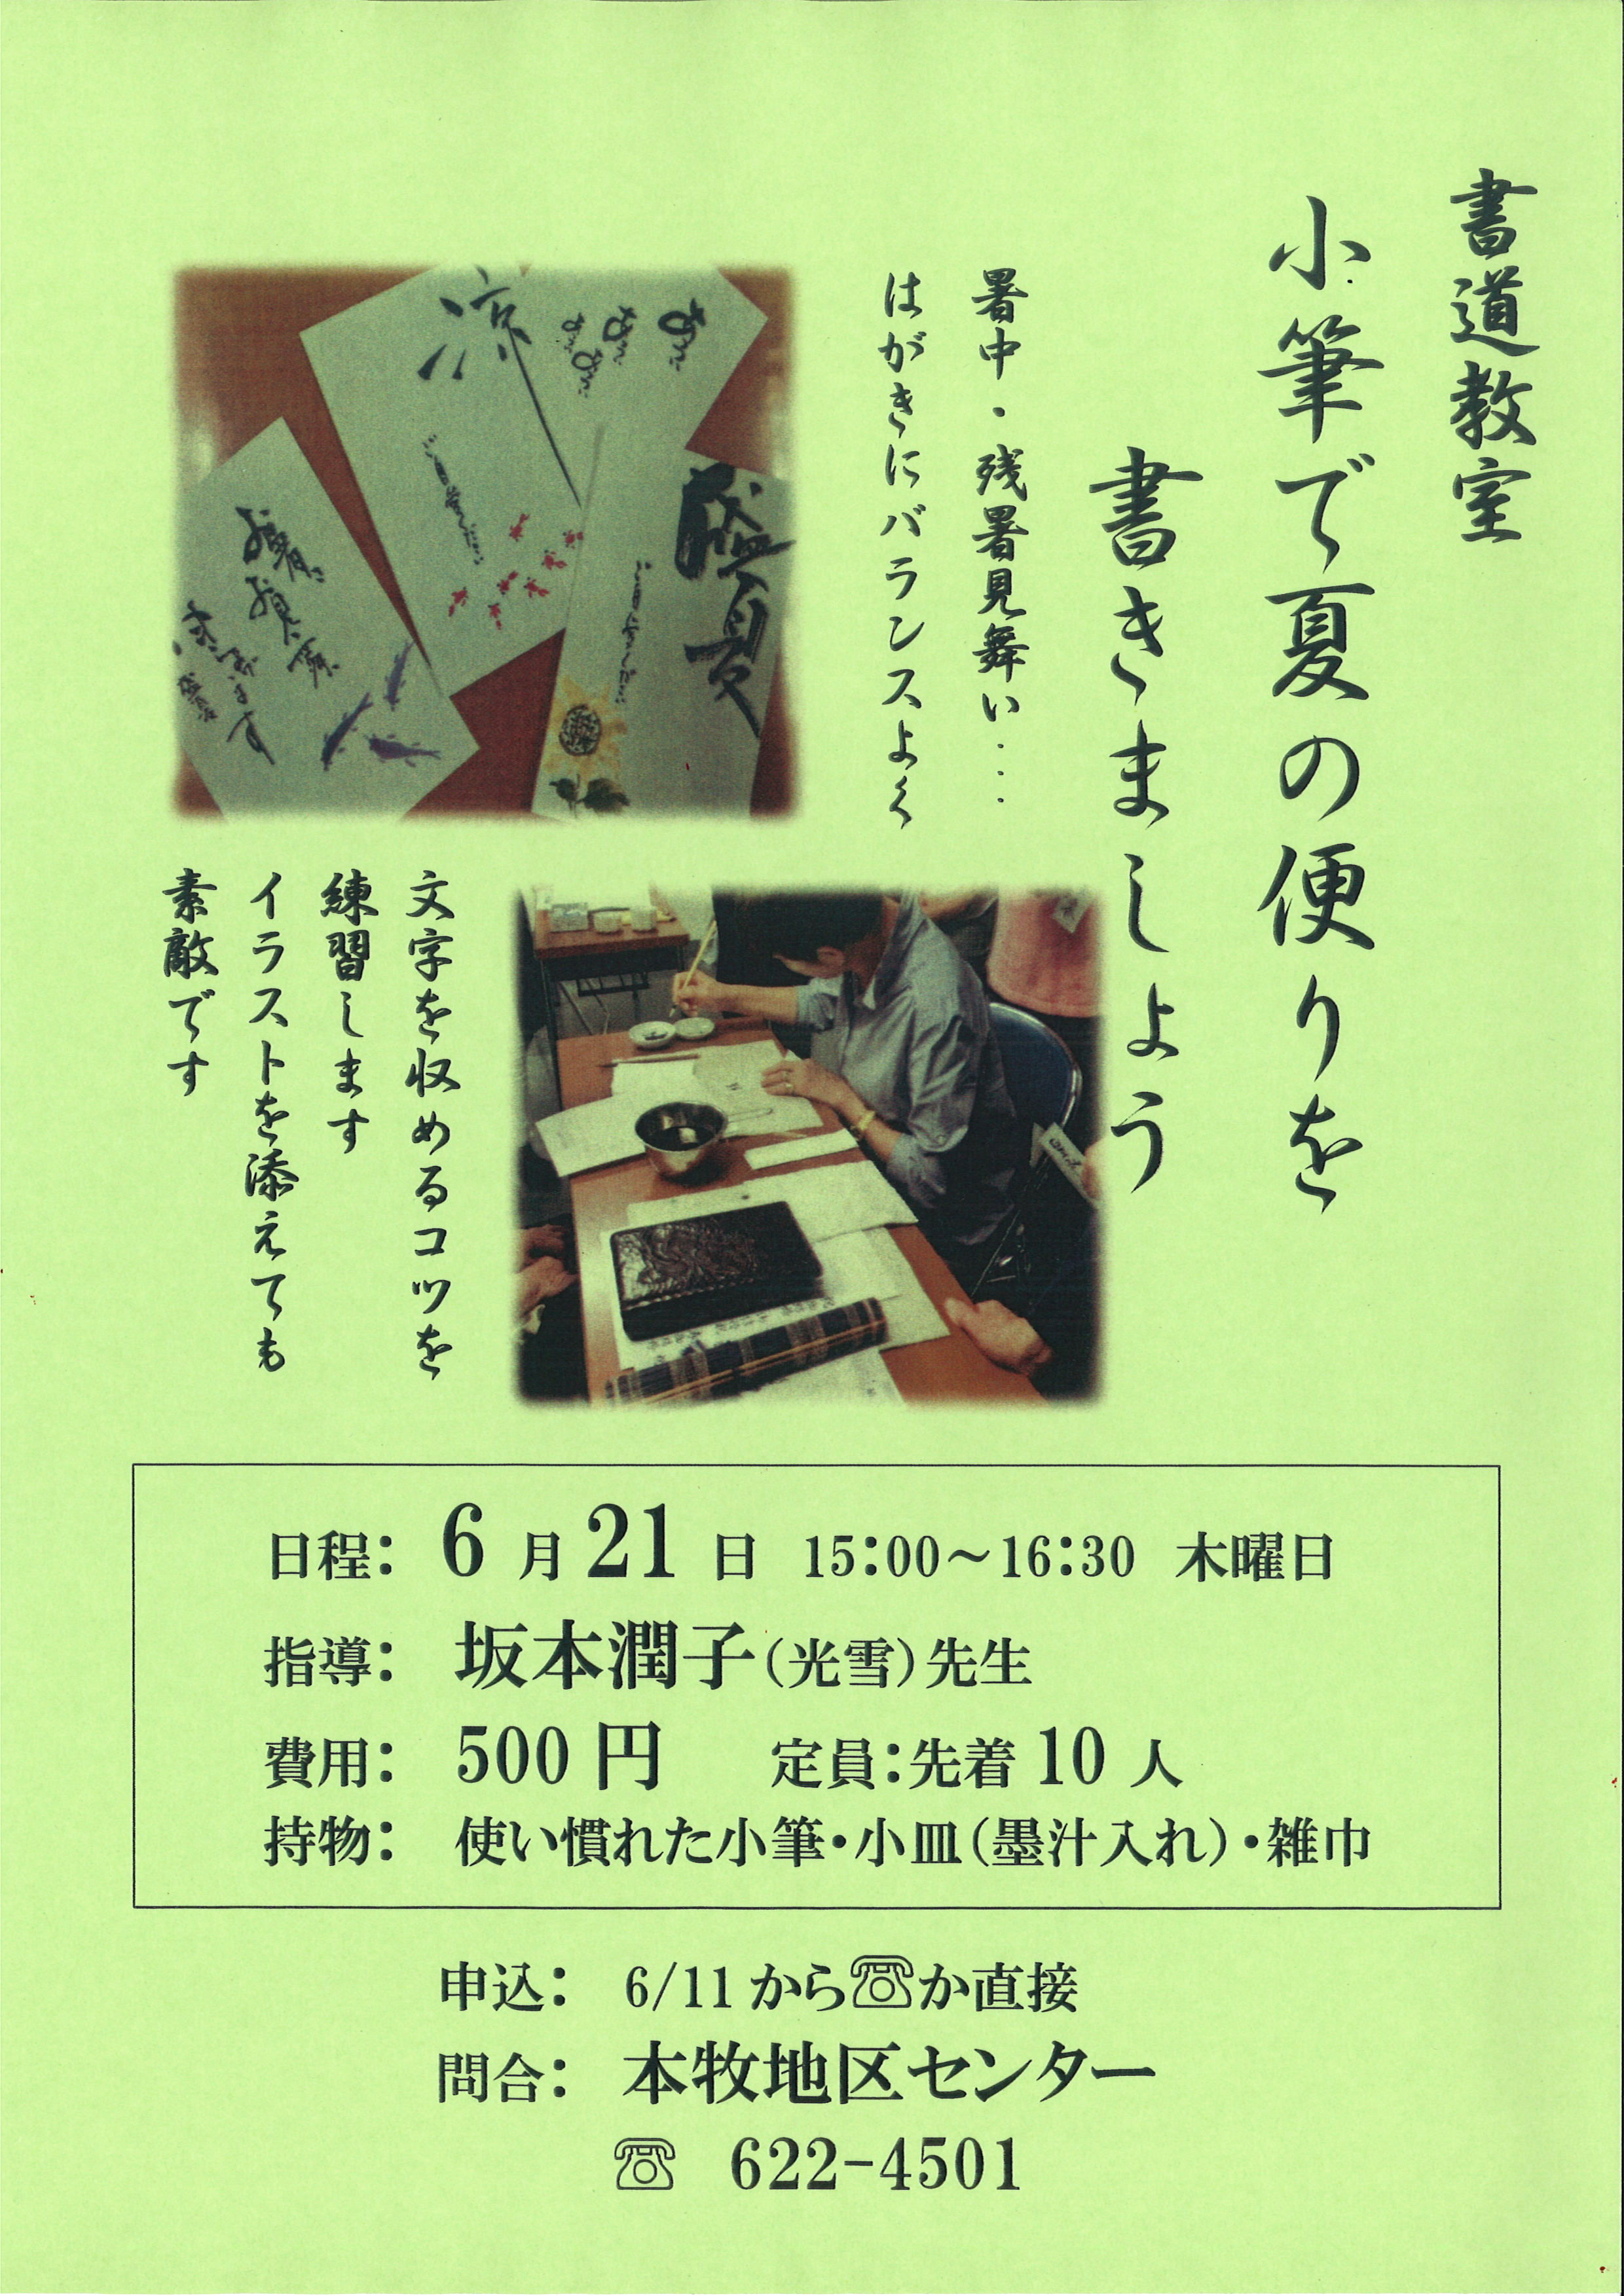 書道教室
小筆で夏の便りを
書きましょう
暑中・残暑見舞い・・・
はがきにバランスよく
文字を収めるコツを
練習します
イラストを添えても
素敵です
涼
盛夏
日程： 6月21日 15：00～16：30 木曜日
指導： 坂本潤子（光雪）先生
費用： 500円 定員：先着10人
持物： 使い慣れた小筆・小皿（墨汁入れ）・雑巾
申込： 6/11から☎か直接
問合： 本牧地区センター
☎ 622-4501